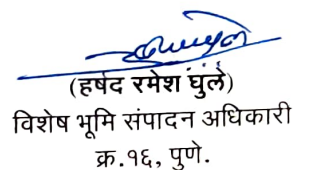 (हर्षद रमेश घुले)
विशेष भूमि संपादन अधिकारी
क्र.१६, पुणे.